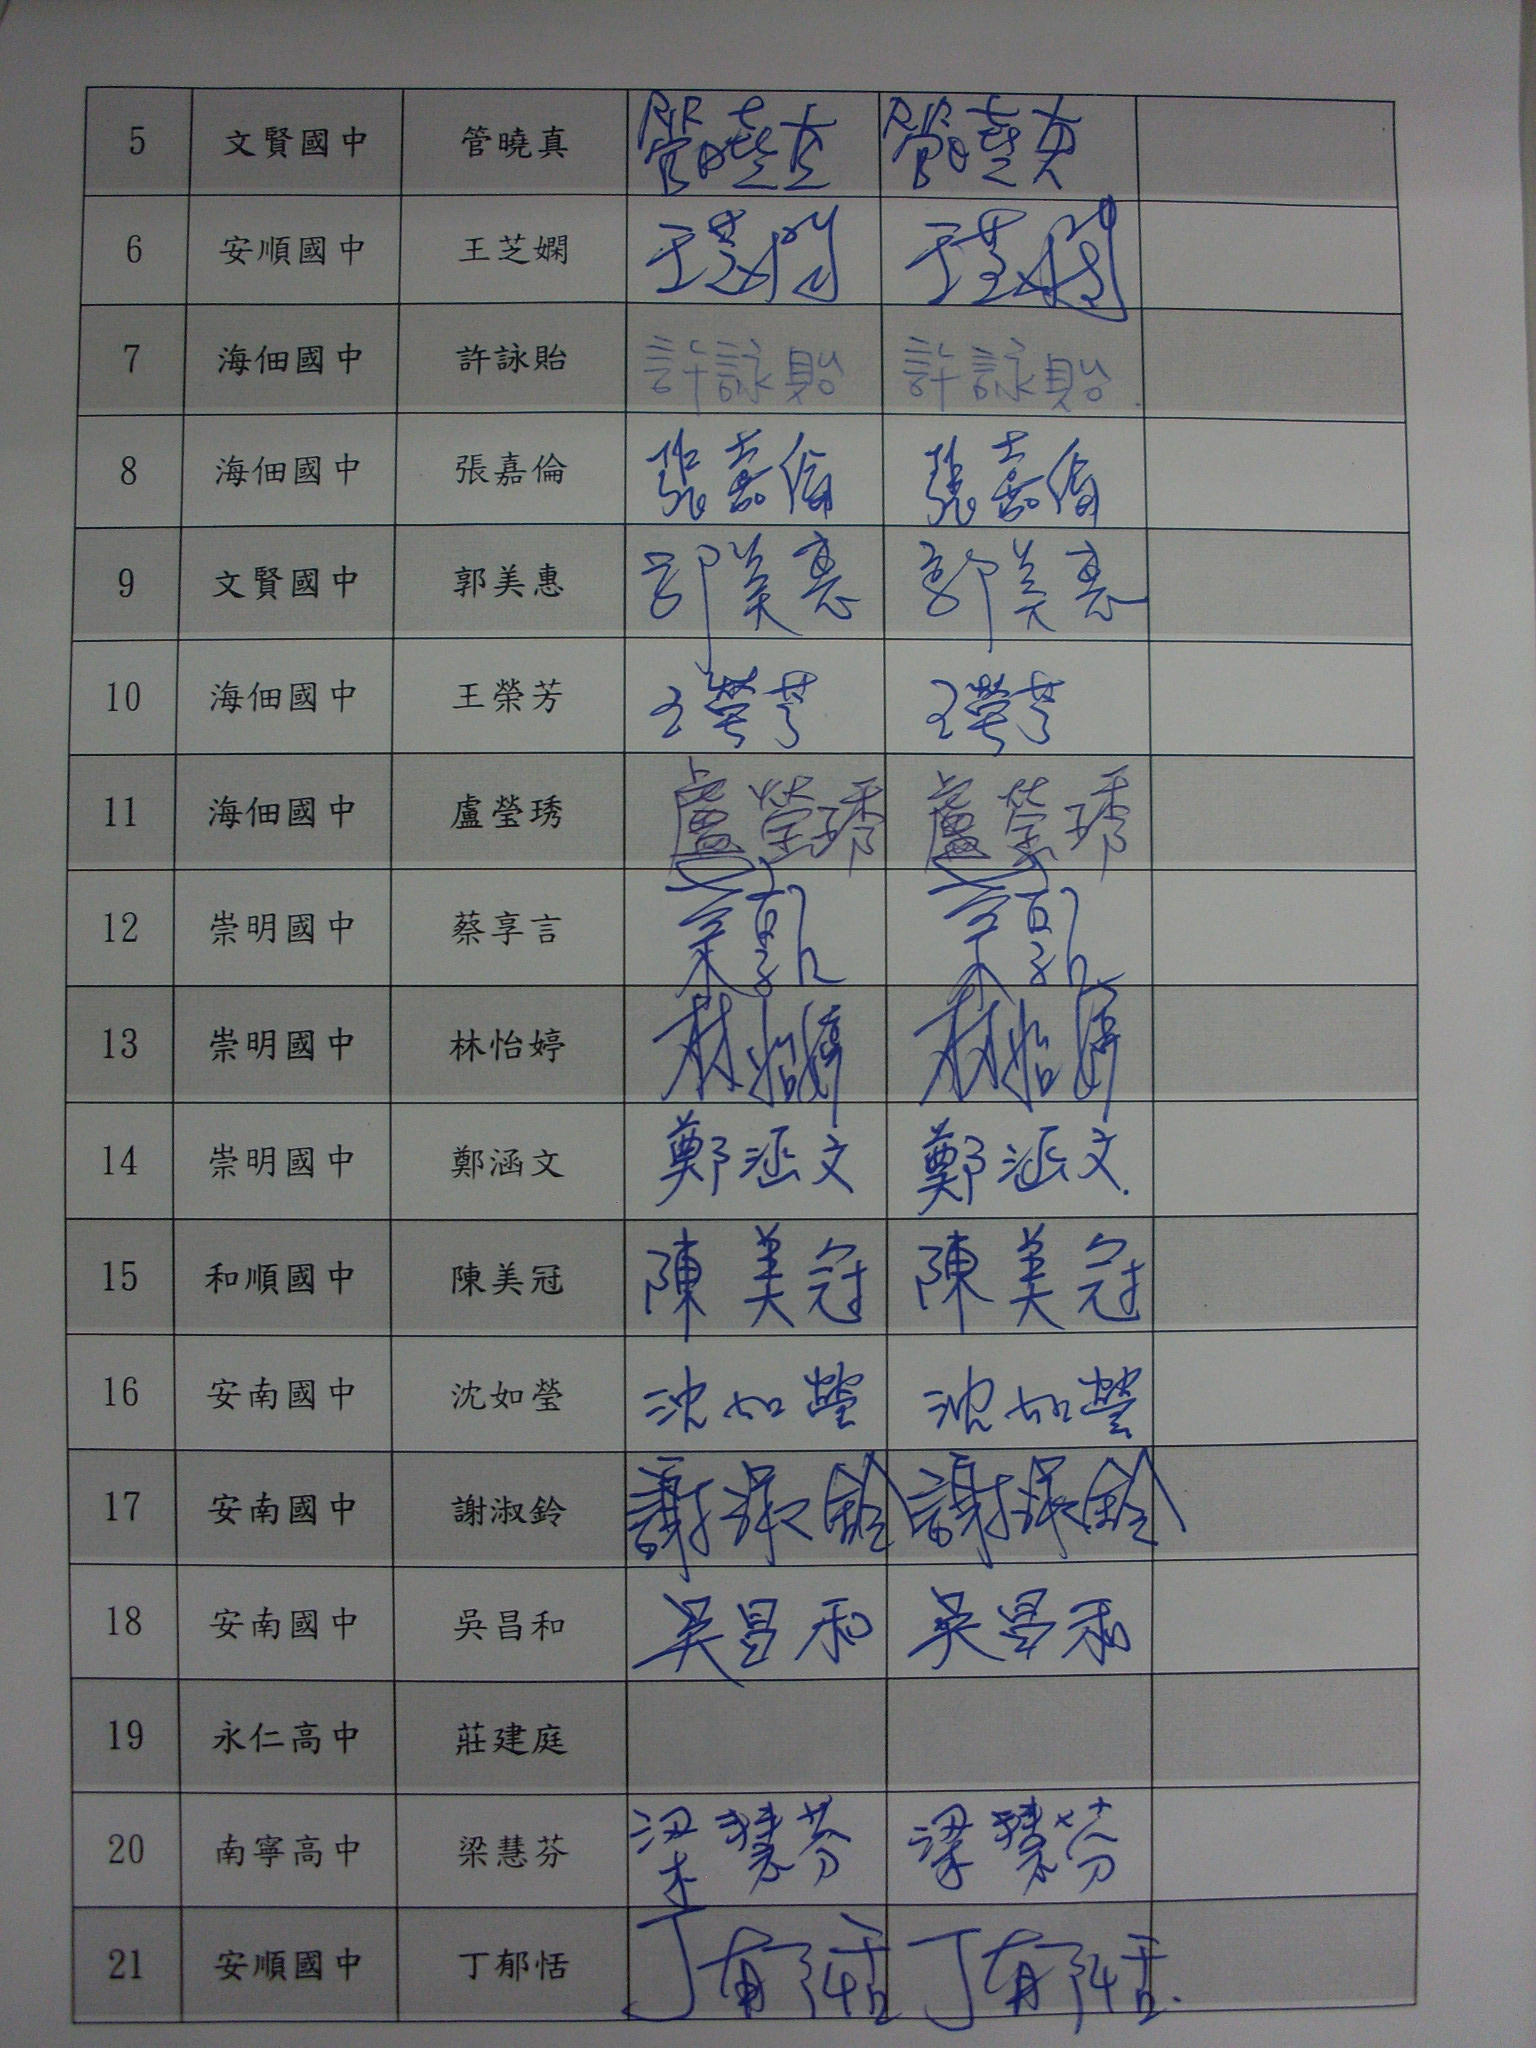 5 文賢國中 管曉真 管曉真 管曉真
6 安順國中 王芝嫻 王芝嫻 王芝嫻
7 海佃國中 許詠貽 許詠貽 許詠貽.
8 海佃國中 張嘉倫 張嘉倫 張嘉倫
9 文賢國中 郭美惠 郭美惠 郭美惠
10 海佃國中 王榮芳 王榮芳 王榮芳
11 海佃國中 盧瑩琇 盧瑩琇 盧瑩琇
12 崇明國中 蔡享言 蔡享言 蔡享言
13 崇明國中 林怡婷 林怡婷 林怡婷
14 崇明國中 鄭涵文 鄭涵文 鄭涵文.
15 和順國中 陳美冠 陳美冠 陳美冠
16 安南國中 沈如瑩 沈如瑩 沈如瑩
17 安南國中 謝淑鈴 謝淑鈴 謝淑鈴
18 安南國中 吳昌和 吳昌和 吳昌和
19 永仁高中 莊建庭
20 南寧高中 梁慧芬 梁慧芬 梁慧芬
21 安順國中 丁郁恬 丁郁恬 丁郁恬.